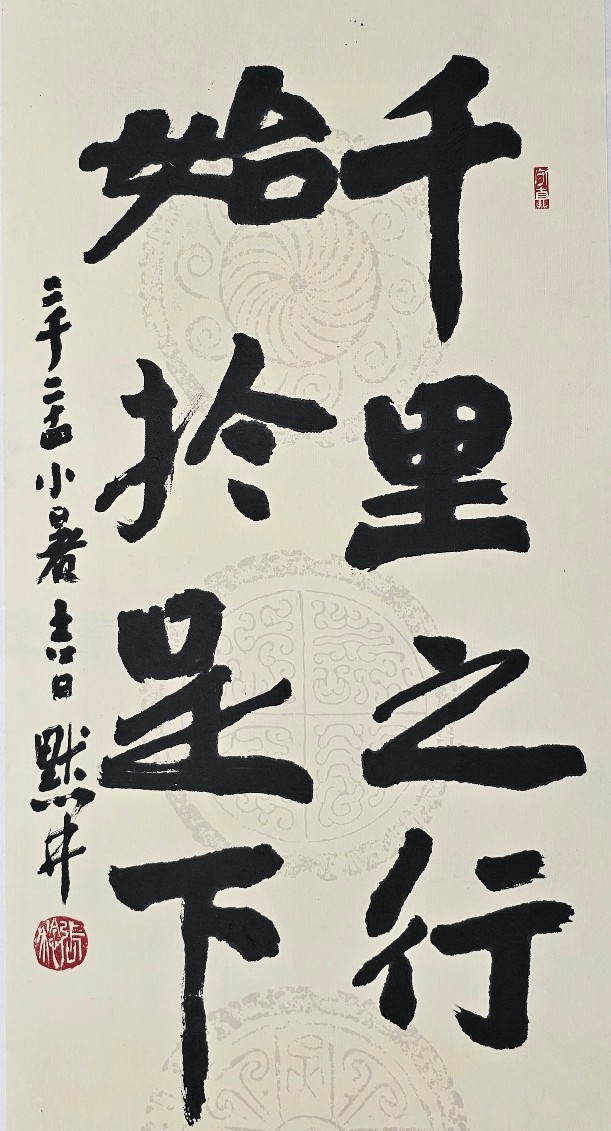 千里之行
始於足下
二千二四小暑吉日 默井